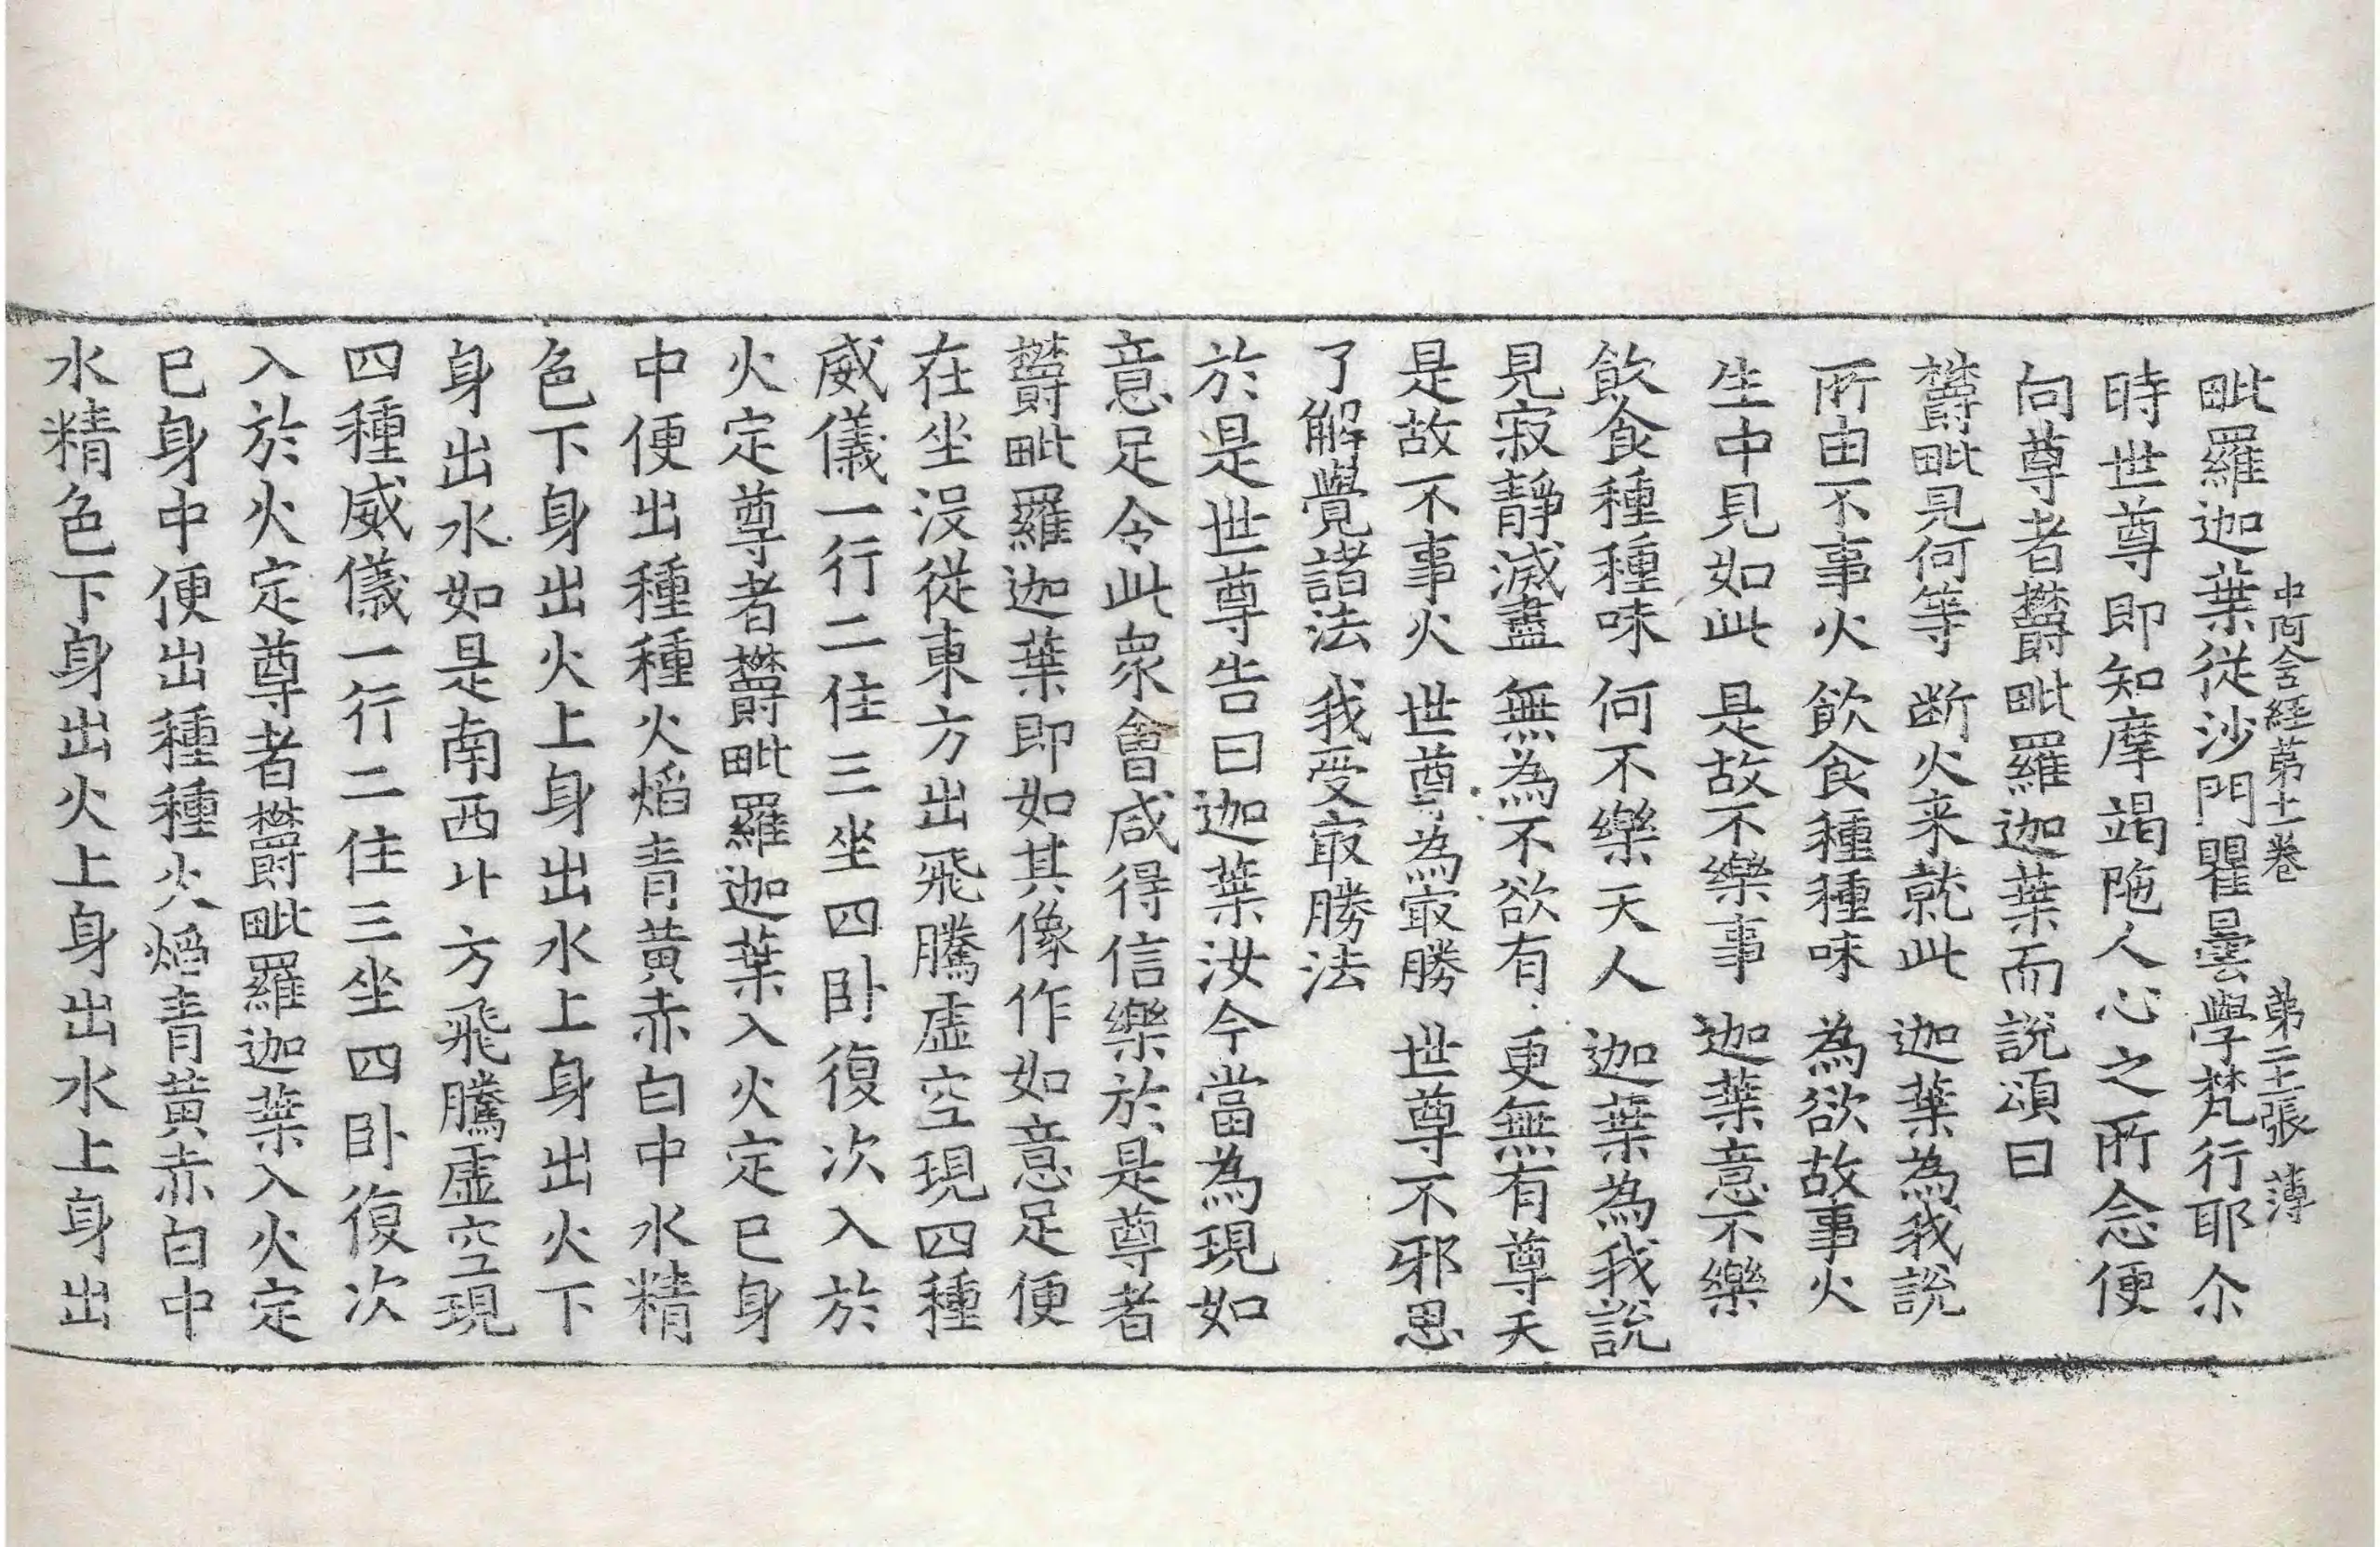 中阿含經第十一卷 第二十二張 薄
毗羅迦葉從沙門瞿曇學梵行耶尒
時世尊即知摩竭陁人心之所念便
向尊者欝毗羅迦葉而說頌曰
欝毗見何等 断火来就此 迦葉為我說
所由不事火 飲食種種味 為欲故事火
生中見如此 是故不樂事 迦葉意不樂
飲食種種味 何不樂天人 迦葉為我說
見寂靜滅盡 無為不欲有 更無有尊天
是故不事火 世尊為㝡勝 世尊不邪思
了解覺諸法 我受㝡勝法
於是世尊告曰迦葉汝今當為現如
意足令此衆會咸得信樂於是尊者
欝毗羅迦葉即如其像作如意足便
在坐没從東方出飛騰虛空現四種
威儀一行二住三坐四卧復次入於
火定尊者欝毗羅迦葉入火定已身
中便出種種火焰青黃赤白中水精
色下身出火上身出水上身出火下
身出水如是南西北方飛騰虛空現
四種威儀一行二住三坐四卧復次
入於火定尊者欝毗羅迦葉入火定
已身中便出種種火焰青黃赤白中
水精色下身出火上身出水上身出